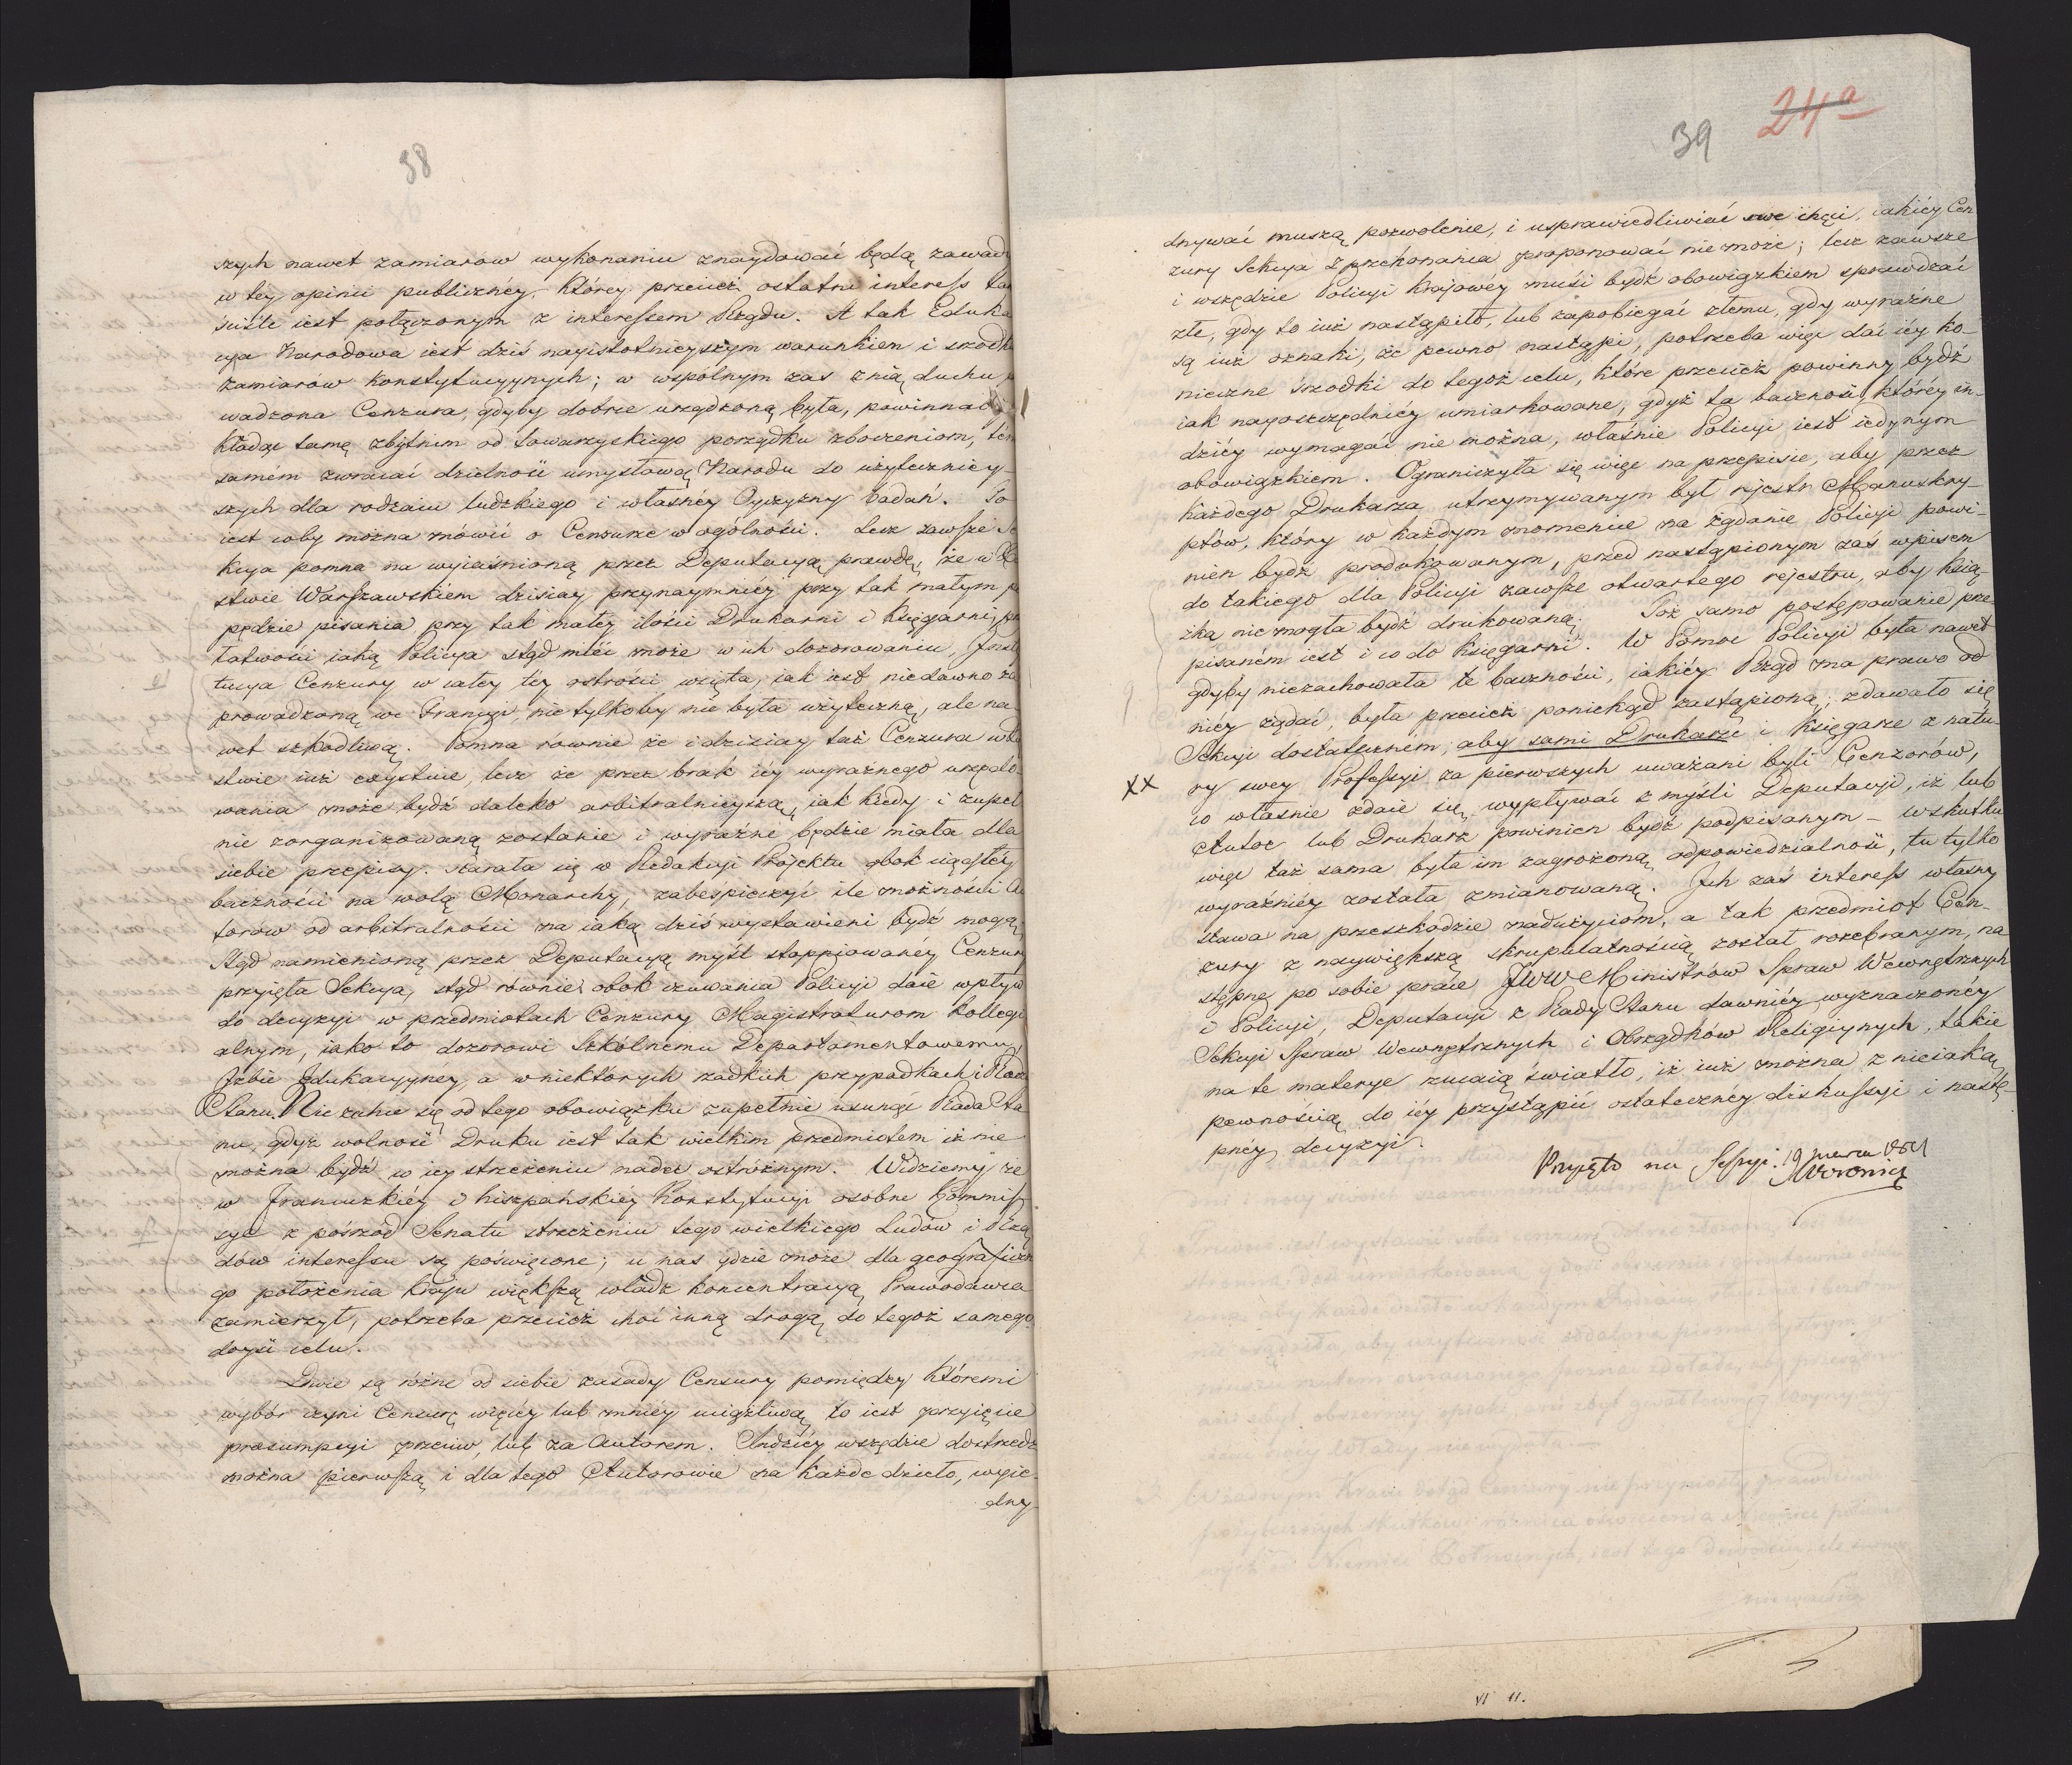 38
szych nawet zamiarów wykonaniu znaydować będą zawad
w tey opinii publicznéy, którey przecież ostatni interess tak
ściśle iest połączonym z interessem Rządu. A tak Eduka
cya Narodowa iest dziś nayistotnieyszym warunkiem i srodk
zamiarów konstytucyynych; w wspólnym zas z nią duchu
wadzona Cenzura, gdyby dobrze urządzoną była, powinna
kładąc tamę zbytnim od towarzyskiego porządku zboczeniom, tém
samém zwracać dzielność umysłową Narodu do użytecznieÿ-
szych dla rodzaiu ludzkiego i własnéy Oyczyzny badań. To
iest coby można mówić o Cenzurze w ogólności. Lecz zawsze Se
kcya pomna na wyiaśnioną przez Deputacyą prawdę, że w Xię
stwie Warszawskiém dzisiay przynaymniéy przy tak małym po
pędzie pisania przy tak małey ilości Drukarni i Księgarni, prz
łatwości iaką Policya stąd mieć może w ich dozorowaniu, Insty
tucya Cenzury w całey tey ostrości wzięta, iak iest niedawno za
prowadzoną we Francyi, nie tylkoby nie była użyteczną, ale na-
wet szkodliwą. Pomna równie że i dzisiay taż Cenzura w Xię
stwie iuż exystuie, lecz że przez brak iéy wyraźnego urzędo-
wania może bydź daleko arbitralnieyszą, iak kiedy i zupeł
nie zorganizowaną zostanie i wyraźne będzie miała dla
siebie przepisy. starała się w Redakcyi Projektu obok ciągłéy
baczności na wolą Monarchy, zabespieczyć ile możności Au
torów od arbitralności na iaką dziś wystawieni bydź mogą,
Stąd namienioną przez Deputacyą myśl stoppiowanéy Cenzury
przyięła Sekcya, stąd równie obok czuwania Policyi daie wpływ
do decyzyi w przedmiotach Cenzury Magistraturom Kollegi
alnym, iako to dozorowi Szkólnemu Departamentowemu,
Izbie Edukacyyney, a w niektórych rzadkich przypadkach i Radzie
Stanu. Nie zchce się od tego obowiązku zupełnie usunąć Rada Sta
nu, gdyż wolność Druku iest tak wielkim przedmiotem iż nie
można bydź w iey strzeżeniu nader ostróżnym. Widziemy że
w Francuzkiéy i hiszpańskiéy Konstytucyi osobne Kommis
sye z pośrzod Senatu strzeżeniu tego wielkiego Ludów i Rzą
dów interessu są poświęcone; u nas gdzie może dla geograficzne
go położenia kraju większą władz koncentracyą Prawodawca
zamierzył, potrzeba przecież choć inną drogą do tegoż samego
doyść celu.
Dwie są różne od siebie zasady Censury pomiędzy któremi
wybór czyni Censurę więcéy lub mniéy uciążliwą, to iest przyięcie
praesumpcyi przeciw, lub za Autorem. Indziéy wszędzie dostrzedz
można pierwszą i dla tego Autorowie na każde dzieło, wyie-
dny-
39
24a
dnywać muszą pozwolenie, i usprawiedliwiać swe chęci, iakiéy Cen
zury Sekcya z przekonania proponować nie może; lecz zawsze
i wszędzie Policyi krajowéy musi bydź obowiązkiem sprawdzać
złe, gdy to iuż nastąpiło, lub zapobiegać złemu, gdy wyraźne
są iuż oznaki, że pewno nastąpi, potrzeba więc dać iéy ko-
nieczne śrzodki do tegoż celu, które przecież powinny bydź
iak nayoszczędniéy umiarkowane, gdyż ta baczność, któréy in-
dziéy wymagać nie można, właśnie Policyi iest iedynym
obowiązkiem. Ograniczyła się więc na przepisie, aby przez
każdego Drukarza utrzymywanym był rejestr Manuskry-
ptów, który w każdym momencie na żądanie Policyi powi-
nien bydź produkowanym, przed nastąpionym zaś wpisem
do takiego dla Policyi zawsze otwartego rejestru, aby ksią-
żka nie mogła bydź drukowaną. Toż samo postępowanie prze-
pisaném iest i co do księgarni. W Pomoc Policyi byłą nawet
gdyby niezachowała te baczności, iakiéy Rząd ma prawo od
niey żądać, była przecież poniekąd zastąpioną; zdawało się
Sekcyi dostateczném, aby sami Drukarze i Księgarze z natu-
XX
ry swey Professyi za pierwszych uważani byli Cenzorów,
co właśnie zdaie się wypływać z myśli Deputacyi, iż lub
Autor lub Drukarz powinien bydź podpisanym – w skutku
więc taż sama była im zagrożoną odpowiedzialność, tu tylko
wyraźniéy została zmianowaną. Ich zaś interess własny
stawa na przeszkodzie nadużyciom, a tak przedmiot Cen-
zury z naywiększą skrupulatnością został rozebranym, na
stępne po sobie prace JWW Ministrów Spraw Wewnętrznych
i Policyi, Deputacyi z Rady Stanu dawniéy wyznaczonéy
Sekcyi Spraw Wewnętrznych i Obrządków Religiynych, takie
na te materye rzucaią światło, iż iuż można z nieiaką
pewnością do iéy przystąpić ostatecznéy diskussyi i nastę-
pnéy decyzyi.
Przyięto na Sessyi. 19 marca
VI 11.